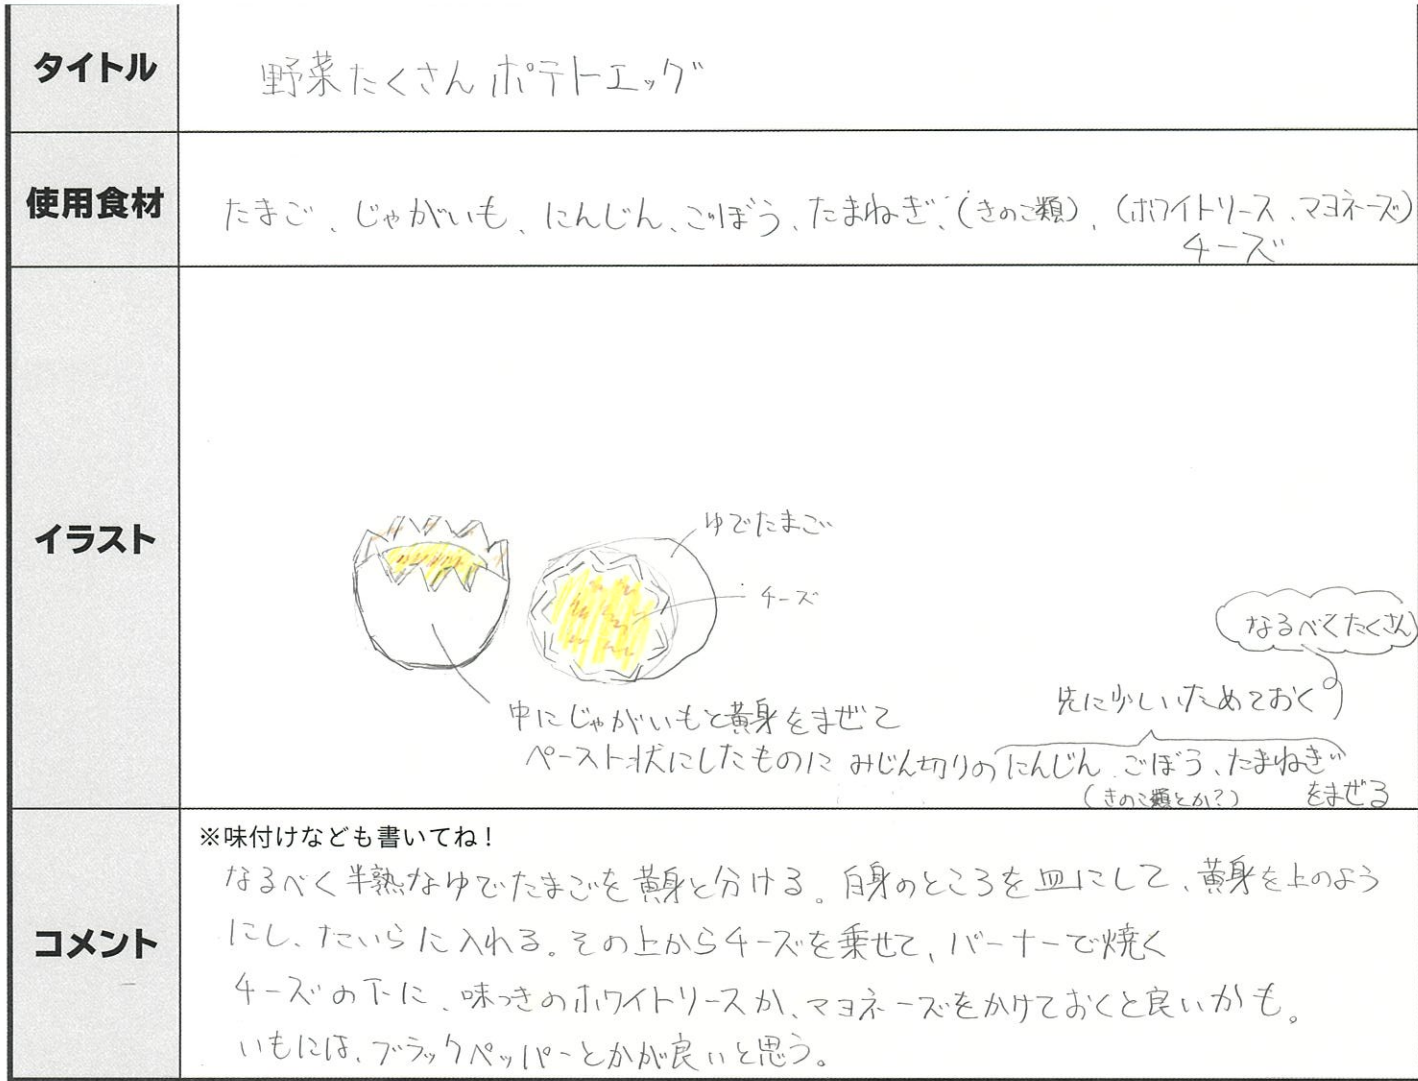 タイトル
野菜たくさんポテトエッグ
使用食材
たまご、じゃがいも、にんじん、ごぼう、たまねぎ、(きのこ類)、(ホワイトソース、マヨネーズ)
チーズ
イラスト
ゆでたまご
チーズ
なるべくたくさん
先に少しいためておく
中にじゃがいもと黄身をまぜて
ペースト状にしたものに みじん切りのにんじん、ごぼう、たまねぎ
(きのこ類とか?)
をまぜる
コメント
※味付けなども書いてね!
なるべく半熟なゆでたまごを黄身と分ける。白身のところを皿にして、黄身を上のよう
にし、たいらに入れる。その上からチーズを乗せて、バーナーで焼く
チーズの下に、味つきのホワイトソースか、マヨネーズをかけておくと良いかも。
いもには、ブラックペッパーとかが良いと思う。